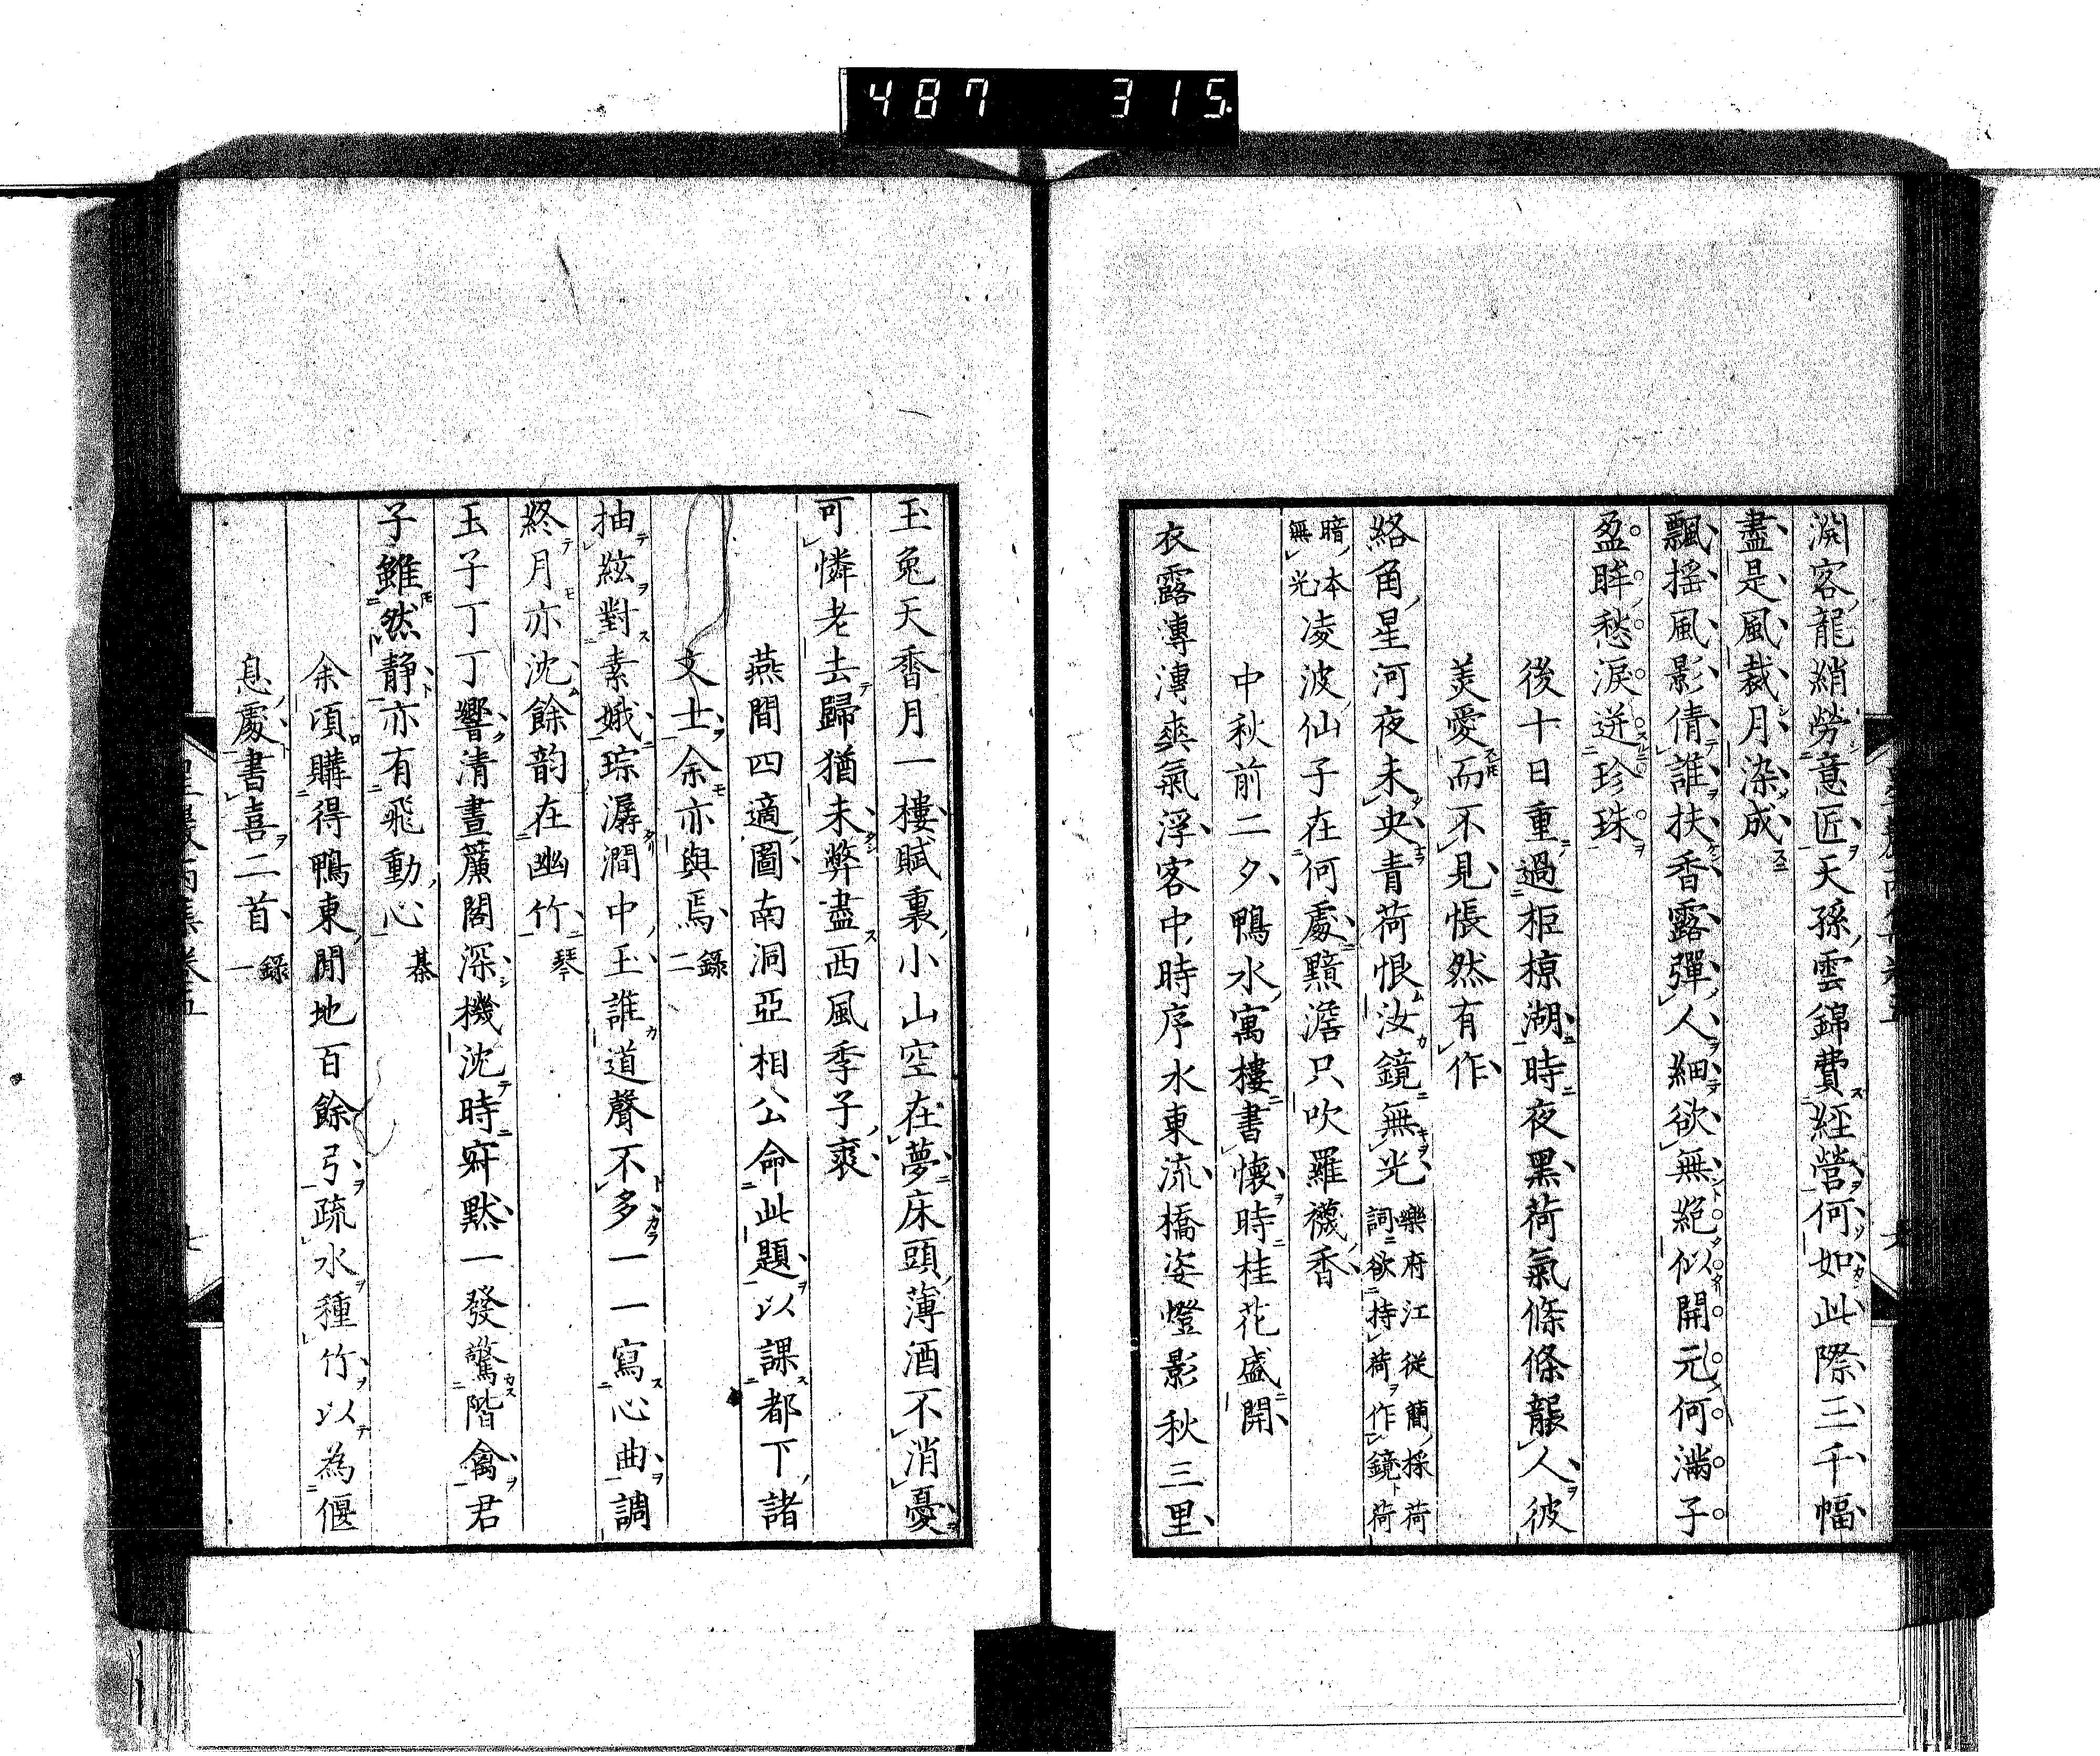 487 315
淵客龍綃勞意匠天孫雲錦費經營何如此際三千幅
盡是風裁月染成
飄搖風影倩誰扶香露彈人細欲無絕似開元何滿子
盈眸愁淚迸珍珠
後十日重過柜椋湖時夜黑荷氣條條襲人彼
美愛而不見悵然有作
絡角星河夜未央青荷恨汝鏡無光樂府江從簡採荷
詞欲持荷作鏡荷
暗本
無光凌波仙子在何處黯澹只吹羅襪香
中秋前二夕鴨水寓樓書懷時桂花盛開
衣露漙漙爽氣浮客中時序水東流橋姿燈影秋三里
玉兔天香月一樓賦裏小山空在夢床頭薄酒不消憂
可憐老去歸猶未弊盡西風季子裘
燕間四適圖南洞亞相公命此題以課都下諸
文士余亦與焉錄二
抽絃對素娥琮潺澗中玉誰道聲不多一一寫心曲調
終月亦沈餘韵在幽竹琴
玉子丁丁響清晝簾閣深機沈時寂默一發驚階禽君
子雖然静亦有飛動心棊
余頃購得鴨東閒地百餘弓疏水種竹以為偃
息處書喜二首錄一